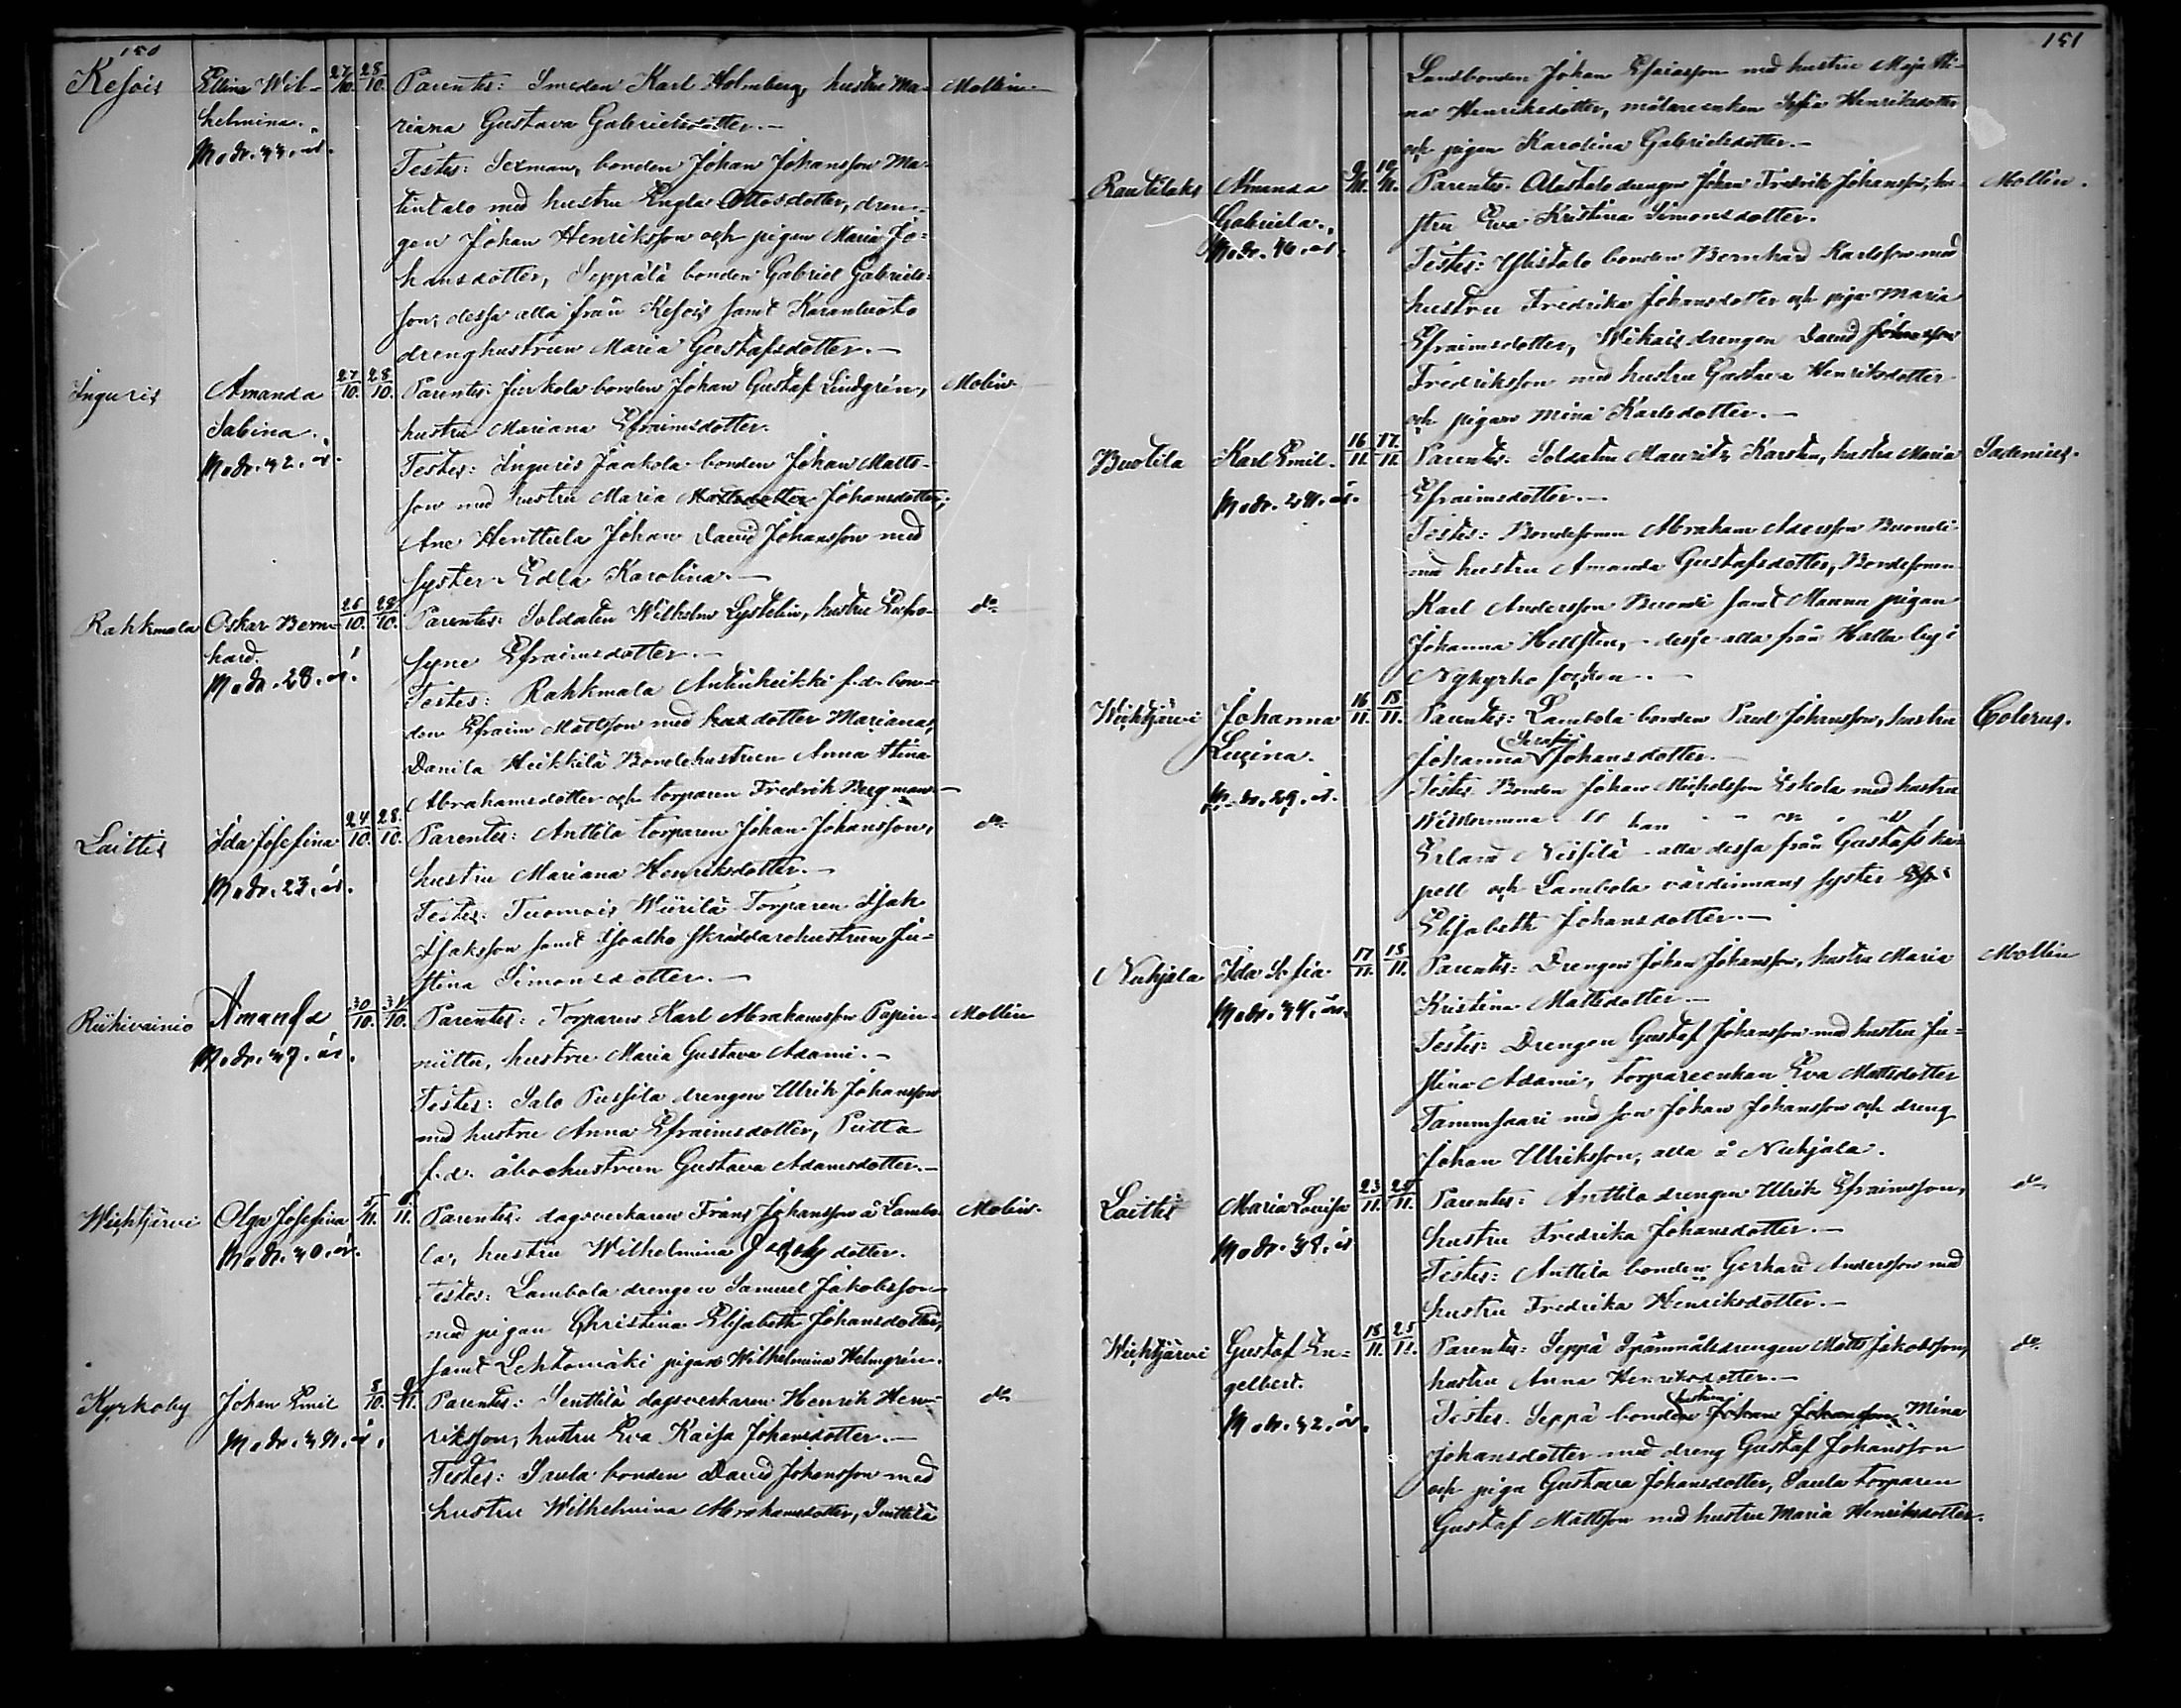 150
Kesois Ellina Wil- 27/10. 28/10. Parentes: Smeden Karl Holmberg, hustru Ma- Mollin
helmina. riana Gustava Gabrielsdotter.—
Modr. 33. år. Testes: Sexman, bonden Johan Johansson Ma-
tintalo med hustru Engla Ottosdotter, dren-
gen Johan Henriksson och pigan Maria Jo-
hansdotter, Seppälä bonden Gabriel Gabriels-
son, dessa alla från Kesois samt Karanluoto
drenghustrun Maria Gustafsdotter.—
Inguris Amanda 27/10. 28/10. Parentes: Junkola bonden Johan Gustaf Lindgrén, Molin
Sabina. hustru Mariana Efraimsdotter.
Modr. 32. år. Testes: Inguris Jaakola bonden Johan Matts-
son med hustru Maria Mattsdotter Johansdotter;
Ane Henttula Johan David Johansson med
syster Edla Karolina.—
Rahkmala Oskar Bern- 26/10. 28/10. Parentes: Soldaten Wilhelm Lystelin, hustru Eufro- do
hard. syne Efraimsdotter.—
Modr. 28. år. Testes: Rahkmala Anttiheikki f.d. bon-
den Efraim Mattsson med dotter Mariana,
Danila Heikkilä Bondehustrun Anna Stina
Abrahamsdotter och torparen Fredrik Bergman—
Laittis Ida Josefina 24/10. 28/10. Parentes: Anttila torparen Johan Johansson, do
Modr. 23. år. hustru Mariana Henriksdotter.—
Testes: Tuomois Wiirilä Torparen Isak
Isaksson samt Isoalho skräddarehustrun Ju-
stina Simonsdotter.—
Riihivainio Amanda 30/10. 31/10. Parentes: Torparen Karl Abrahamsson Papin- Mollin
Modr. 37. år. niittu, hustru Maria Gustava Adami.—
Testes: Salo Pussila drengen Ulrik Johansson
med hustru Anna Efraimsdotter, Putta
f.d. åbohustrun Gustava Adamsdotter.—
Wichtjärvi Olga Josefina 5/11. 6/11. Parentes: dagsverkaren Frans Johansson å Lambo- Molin.
Modr. 30. år. la, hustru Wilhelmina dotter.
Testes: Lambola drengen Samuel Jakobsson
med pigan Christina Elisabeth Johansdotter,
samt Lehtomäki pigan Wilhelmina Helmgrén.
Kyrkoby Johan Emil 8/10. 9/11. Parentes: Senttilä dagsverkaren Henrik Hen- do
Modr. år. riksson, hustru Eva Kaisa Johansdotter.—
Testes: Saula bonden David Johansson med
hustru Wilhelmina Abrahamsdotter, Senttilä
151
Landbonden Johan Esaiasson med hustru Maja Sti-
na Henriksdotter, målareenkan Sofia Henriksdotter
och pigan Karolina Gabrielsdotter.—
Rautilaks Amanda 9/11. 10/11. Parentes: Alastalo drengen Johan Fredrik Johansson, hu- Mollin.
Gabriela. stru Eva Kristina Simonsdotter.
Modr. 46. år. Testes: Ylistalo bonden Bernhard Karlsson med
hustru Fredrika Johansdotter och piga Maria
Efraimsdotter, Wihais drengen David Johansson
Fredriksson med hustru Gustava Henriksdotter
och pigan Mina Karlsdotter.—
Buotila Karl Emil. 16/11. 17/11. Parentes: Soldaten Mauritz Karsten, hustru Maria Sadenius.
Modr. 24. år. Efraimsdotter.—
Testes: Bondesonen Abraham Andersson Buondi
med hustru Amanda Gustafsdotter, Bondesonen
Karl Andersson Buondi samt Manna pigan
Johanna Hellsten, — desse alla från Halla by i
Nykyrko socken.—
Wichtjärvi Johanna 16/11. 18/11. Parentes: Lambola bonden Paul Johansson, hustru Colerus.
Lucina. Johanna Serafia Johansdotter.—
Modr. 29. år. Testes: Bonden Johan Michelsson Eskola med hustru
Erland Neisilä — alla dessa från Gustafs ka-
pell och Lambola värdinnans syster
Elisabeth Johansdotter.—
Nuhjala Ida Sofia 17/11. 18/11. Parentes: Drengen Johan Johansson, hustru Maria Mollin
Modr. 34. år. Kristina Mattsdotter.—
Testes: Drengen Gustaf Johansson med hustru Ju-
stina Adami, torpareenkan Eva Mattsdotter
Tammsaari med son Johan Johansson och dreng
Johan Ulriksson, alla å Nuhjala.
Laittis Maria Lovisa 23/11. 24/11. Parentes: Anttila drengen Ulrik Efraimsson, do
Modr. 38. år hustru Fredrika Johansdotter.—
Testes: Anttila bonden Gerhard Andersson med
hustru Fredrika Henriksdotter.—
Wichtjärvi Gustaf En- 18/11. 25/11. Parentes: Seppä Spånmålsdrengen Matts Jakobsson, do
gelbert. hustru Anna Henriksdotter.—
Modr. 32. år. Testes: Seppä bonden hustru Johan Johansson Mina
Johansdotter med dreng Gustaf Johansson
och piga Gustava Johansdotter, Saula torparen
Gustaf Mattsson med hustru Maria Henriksdotter.